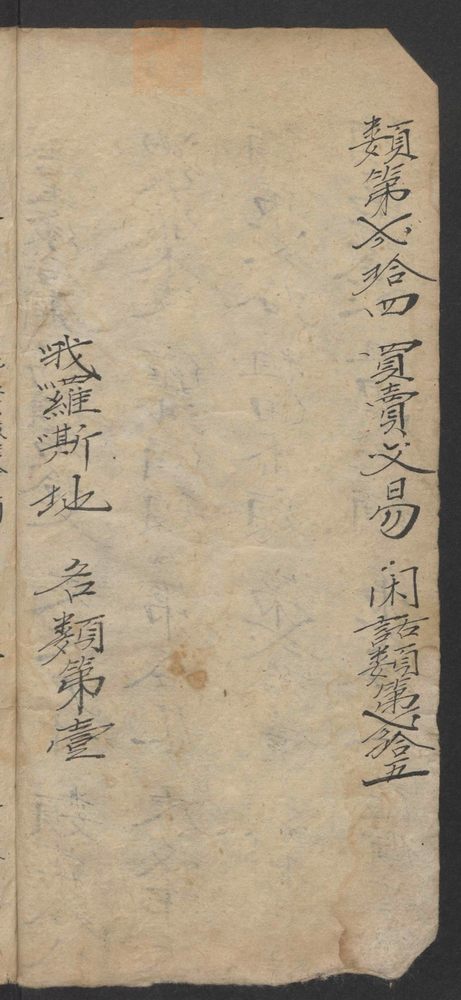 類第弍拾四 買賣交易 閑話類第弍拾五
哦羅斯地 各類第壹